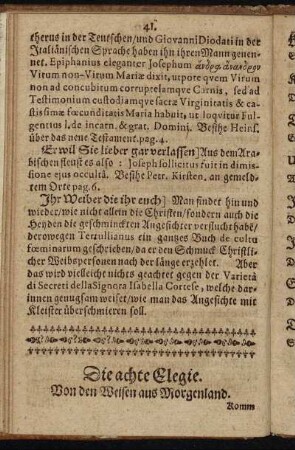 41.
therus in der Teutschen/und Giovanni Diodati in der
Italiänischen Sprache haben ihn ihren Mann genen-
net. Epiphanius eleganter Josephum ἄνδρα ἄνανδρον
Virum non-Virum Mariæ dixit, utpote qvem Virum
non ad concubitum corruptelamqve Carnis, sed ad
Testimonium custodiamqve sacræ Virginitatis & ca-
stissimæ fœcunditatis Maria habuit, ut loqvitur Ful-
gentius l. de incarn. & grat. Domini. Besihe Heins.
über das neue Testament. pag. 4.
Er wil Sie lieber gar verlassen] Aus dem Ara-
bischen fleust es also: Joseph sollicitus fuit in dimissi-
one ejus occultâ. Besihe Petr. Kirsten. an gemeld-
tem Orte pag. 6.
Ihr Weiber die ihr euch] Man findet hin und
wieder/wie nicht allein die Christen/sondern auch die
Heyden die geschminckten Angesichter verflucht habē/
derowegen Tertullianus ein gantzes Buch de cultu
fœminarum geschrieben/da er den Schmuck Christli-
cher Weibspersonen nach der länge erzehlet. Aber
das wird vielleicht nichts geachtet gegen der Varietà
di Secreti della Signora Isabella Cortese, welche dar-
innen genugsam weiset/wie man das Angesichte mit
Kleister überschmieren soll.
Die achte Elegie.
Von den Weisen aus Morgenland.
Komm